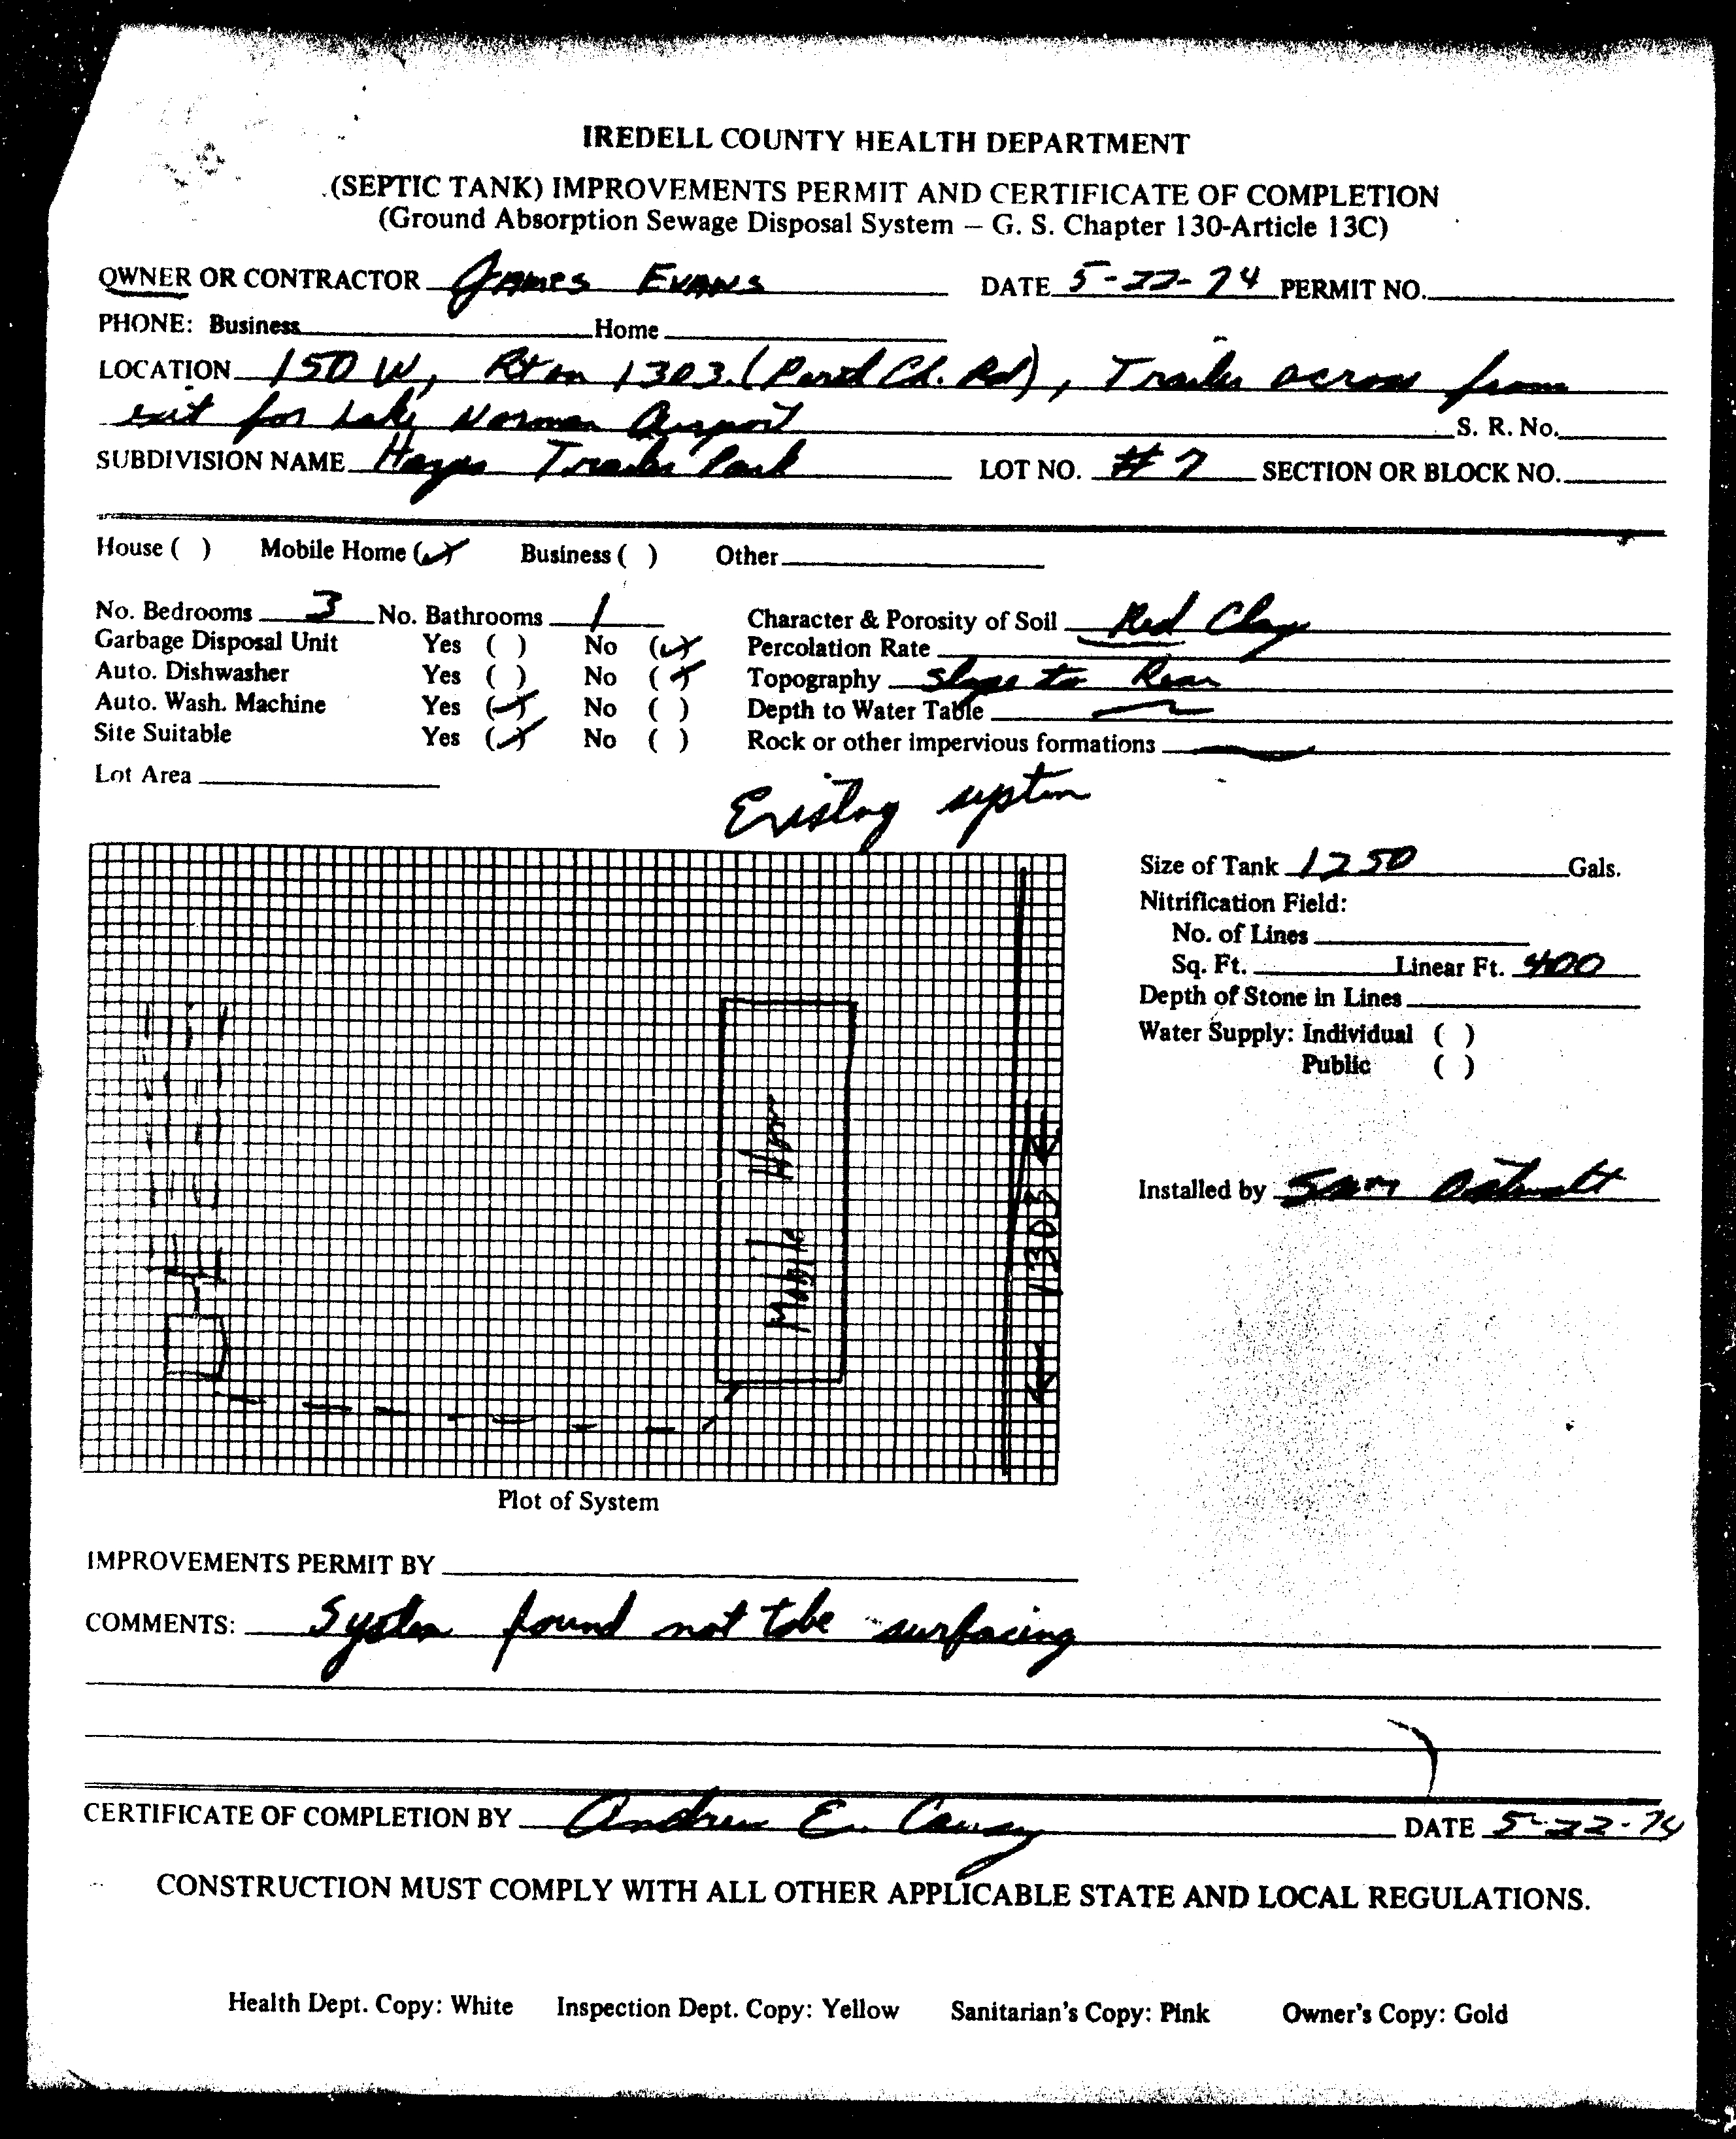 IREDELL COUNTY HEALTH DEPARTMENT
(SEPTIC TANK) IMPROVEMENTS PERMIT AND CERTIFICATE OF COMPLETION
(Ground Absorption Sewage Disposal System — G. S. Chapter 130-Article 13C)
OWNER OR CONTRACTOR James Evans DATE 5-22-74 PERMIT NO.
PHONE: Business Home
LOCATION 150 W, Rt on 1303 (Perth Ch. Rd), Trailer across from
exit for Lake Norman Airport S. R. No.
SUBDIVISION NAME Hayes Trailer Park LOT NO. #7 SECTION OR BLOCK NO.
House ( ) Mobile Home (✓) Business ( ) Other
No. Bedrooms 3 No. Bathrooms 1 Character & Porosity of Soil Red Clay
Garbage Disposal Unit Yes ( ) No (✓) Percolation Rate
Auto. Dishwasher Yes ( ) No (✓) Topography Slope to Rear
Auto. Wash. Machine Yes (✓) No ( ) Depth to Water Table
Site Suitable Yes (✓) No ( ) Rock or other impervious formations
Lot Area
Existing system
Size of Tank 1250 Gals.
Nitrification Field:
No. of Lines
Sq. Ft. Linear Ft. 400
Depth of Stone in Lines
Water Supply: Individual ( )
Public ( )
Mobile Hom
1303
Installed by Sam
Plot of System
IMPROVEMENTS PERMIT BY
COMMENTS: System found not to be surfacing
CERTIFICATE OF COMPLETION BY Andrew E. DATE 5-22-74
CONSTRUCTION MUST COMPLY WITH ALL OTHER APPLICABLE STATE AND LOCAL REGULATIONS.
Health Dept. Copy: White Inspection Dept. Copy: Yellow Sanitarian's Copy: Pink Owner's Copy: Gold